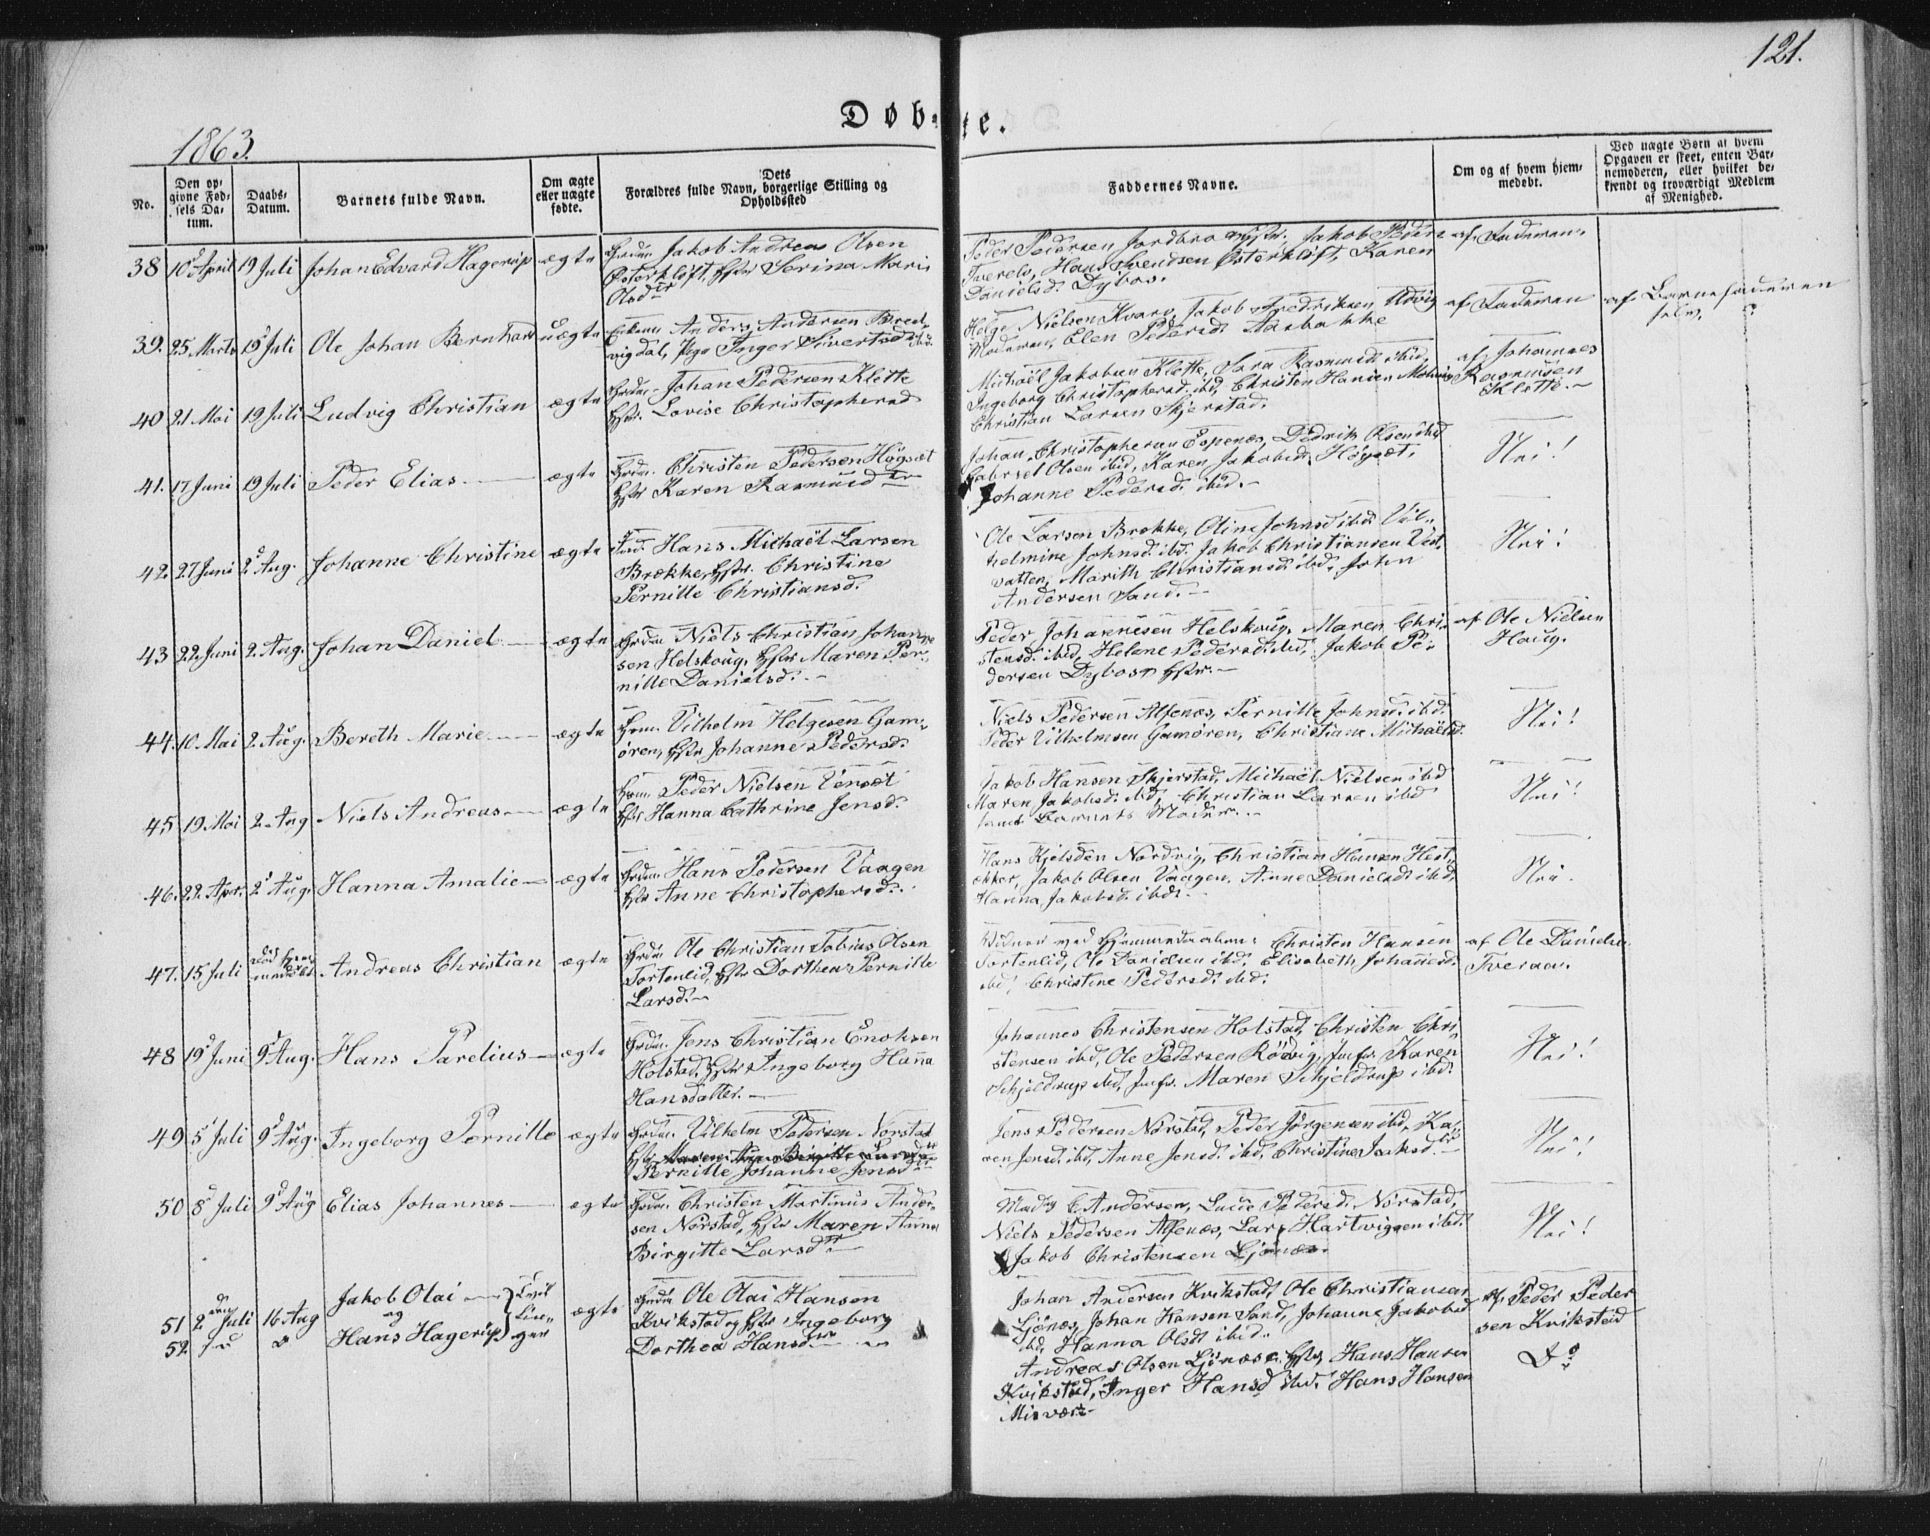 121.
Døbte.
1863.
No.
Den opgivne Fødsels Datum.
Daabs-Datum.
Barnets fulde Navn.
Om ægte eller uægte fødte.
Dets Forældres fulde Navn, borgerlige Stilling og Opholdssted
Faddernes Navne.
Om og af hvem hjemmedøbt.
Ved uægte Børn af hvem Opgaven er skeet, enten Barnemoderen, eller hvilket bekjendt og troværdigt Medlem af Menighed.
38 10d April 19 Juli Johan Edvard Hagerup ægte
Jakob Andreas Olsen
Østerkløft, Serina Marie
Olsdtr
Peder Pedersen Jordbro Jakob
Tverels, Hans Svendsen Østerkløft, Karen
Danielsd. Dybos.
af Faderen.
39. 25 Marts 15 Juli Ole Johan Bernhard uægte
Anders Andersen Bred-
vigdal, Pige Inger Sivertsd ibid.
Helge Nielsen Kvare, Jakob Fredriksen Udvig
Moderen, Elen Pedersd. Aasbakke
af Faderen
af Barnefaderen
selv.
40 21 Mai 19 Juli Ludvig Christian ægte
Johan Pedersen Klette
Lovise Christophersd
Michael Jakobsen Klette, Sara Rasmusd ibid,
Ingeborg Christophersd. ibd, Christen Hansen
Christian Larsen Skjerstad.
af Johannes
Rasmusen
Klette.
41. 17 Juni 19 Juli Peder Elias ægte
Christen Pedersen Høgset
Karen Rasmusdtr
Johan Christophersen Espenes, Dedrik Olsen ibid
Gabriel Olsen ibid, Karen Jakobsd. Høgset,
Johanne Pedersd. ibid.
Nei!
42. 27 Juni 2d Aug. Johanne Christine ægte
Hans Michaël Larsen
Brække, Christine
Pernille Christiansd.
Ole Larsen Brække, Oline Johnsd ibid Vil-
helmine Johnsd. ibd. Jakob Christiansen Vest-
vatten, Marith Christiansd. ibid. John
Andersen Sand.
Nei!
43 22 Juni 2. Aug. Johan Daniel ægte
Niels Christian Johanne-
sen Helskoug, Maren Per-
nille Danielsd.
Peder Johannesen Helskoug, Maren Chri-
stensd. ibid, Helene Pedersd. ibid, Jakob Pe-
dersen Dybos
af Ole Nielsen
Houg.
44. 10. Mai 2. Aug. Bereth Marie ægte
Vilhelm Helgesen Gam-
øren, Johanne Pedersd.
Niels Pedersen Alfenæs, Pernille Johnsd. ibid.
Peder Vilhelmsen Gamøren, Christiane Michaelsd.
Nei!
45 19 Mai 2. Aug Niels Andreas ægte
Peder Nielsen Venset
Hanna Cathrine Jensd.
Jakob Hansen Skjerstad, Michaël Nielsen ibd
Maren Jakobsd. ibd, Christian Larsen ibid
samt Barnets Moder.
Nei!
46. 22. Apr. 2d Aug. Hanna Amalie ægte
Hans Pedersen Vaagen
Anne Christophersd.
Hans Kjelsden Nordvig, Christian Hansen Hest-
ækker, Jakob Olsen Vaagen, Anne Danielsd. ibid,
Hanna Jakobsd. ibd.
Nei.
47. 15 Juli Andreas Christian ægte
Ole Christian Tobias Olsen
Tortenlid, Dorthea Pernille
Larsd.
Vidner ved Hjemmedaaben: Christen Hansen
Tortenlid, Ole Danielsen ibd. Elisabeth Johannesd.
ibd, Christine Pedersd. ibd.
af Ole Danielse
Tveraa.
48 19d Juni 9d Aug. Hans Parelius ægte
Jens Christian Enoksen
Holstad, Ingeborg Hanna
Hansdatter.
Johannes Christensen Holstad, Christen Chri-
stensen ibd, Ole Pedersen Rødvig, Jmfr. Karen
Schjeldrup ibd, Jmfr. Maren Schjeldrup ibd.
Nei!
49 5d Juli 9d Aug. Ingeborg Pernille ægte
Vilhelm Pedersen Norstad
Pernille Johanne Jensdtr
Jens Pedersen Norstad, Peder Jørgensen ibd, Ka-
ren Jensd. ibd, Anne Jensd. ibd, Christine Isaksd.
Nei!
50 8d Juli 9d Aug Elias Johannes ægte
Christen Martinus Ander-
sen Norstad, Maren Anna
Birgitte Larsdtr
Mads C. Andersen, Lucie Pedersd. Norstad,
Niels Pedersen Alfenæs, Lars Hartvigsen ibid.
Jakob Christensen Ljønæs.
Nei!
51 2den Juli 16 Aug Jakob Olai
og
52. Hans Hagerup
ægte
Ole Olai Hansen
Kvikstad og Ingeborg
Dorthea Hansdtr
Johan Andersen Kvikstad, Ole Christiansen
Ljønæs, Johan Hansen Sand, Johanne Jakobsd
ibd, Hanna Olsdt ibid.
Andreas Olsen Ljønæs, Hans Hansen
Kvikstad, Inger Hansd ibd. Hans Hansen
Misvær.
af Peder Peder
sen Kvikstad
Do